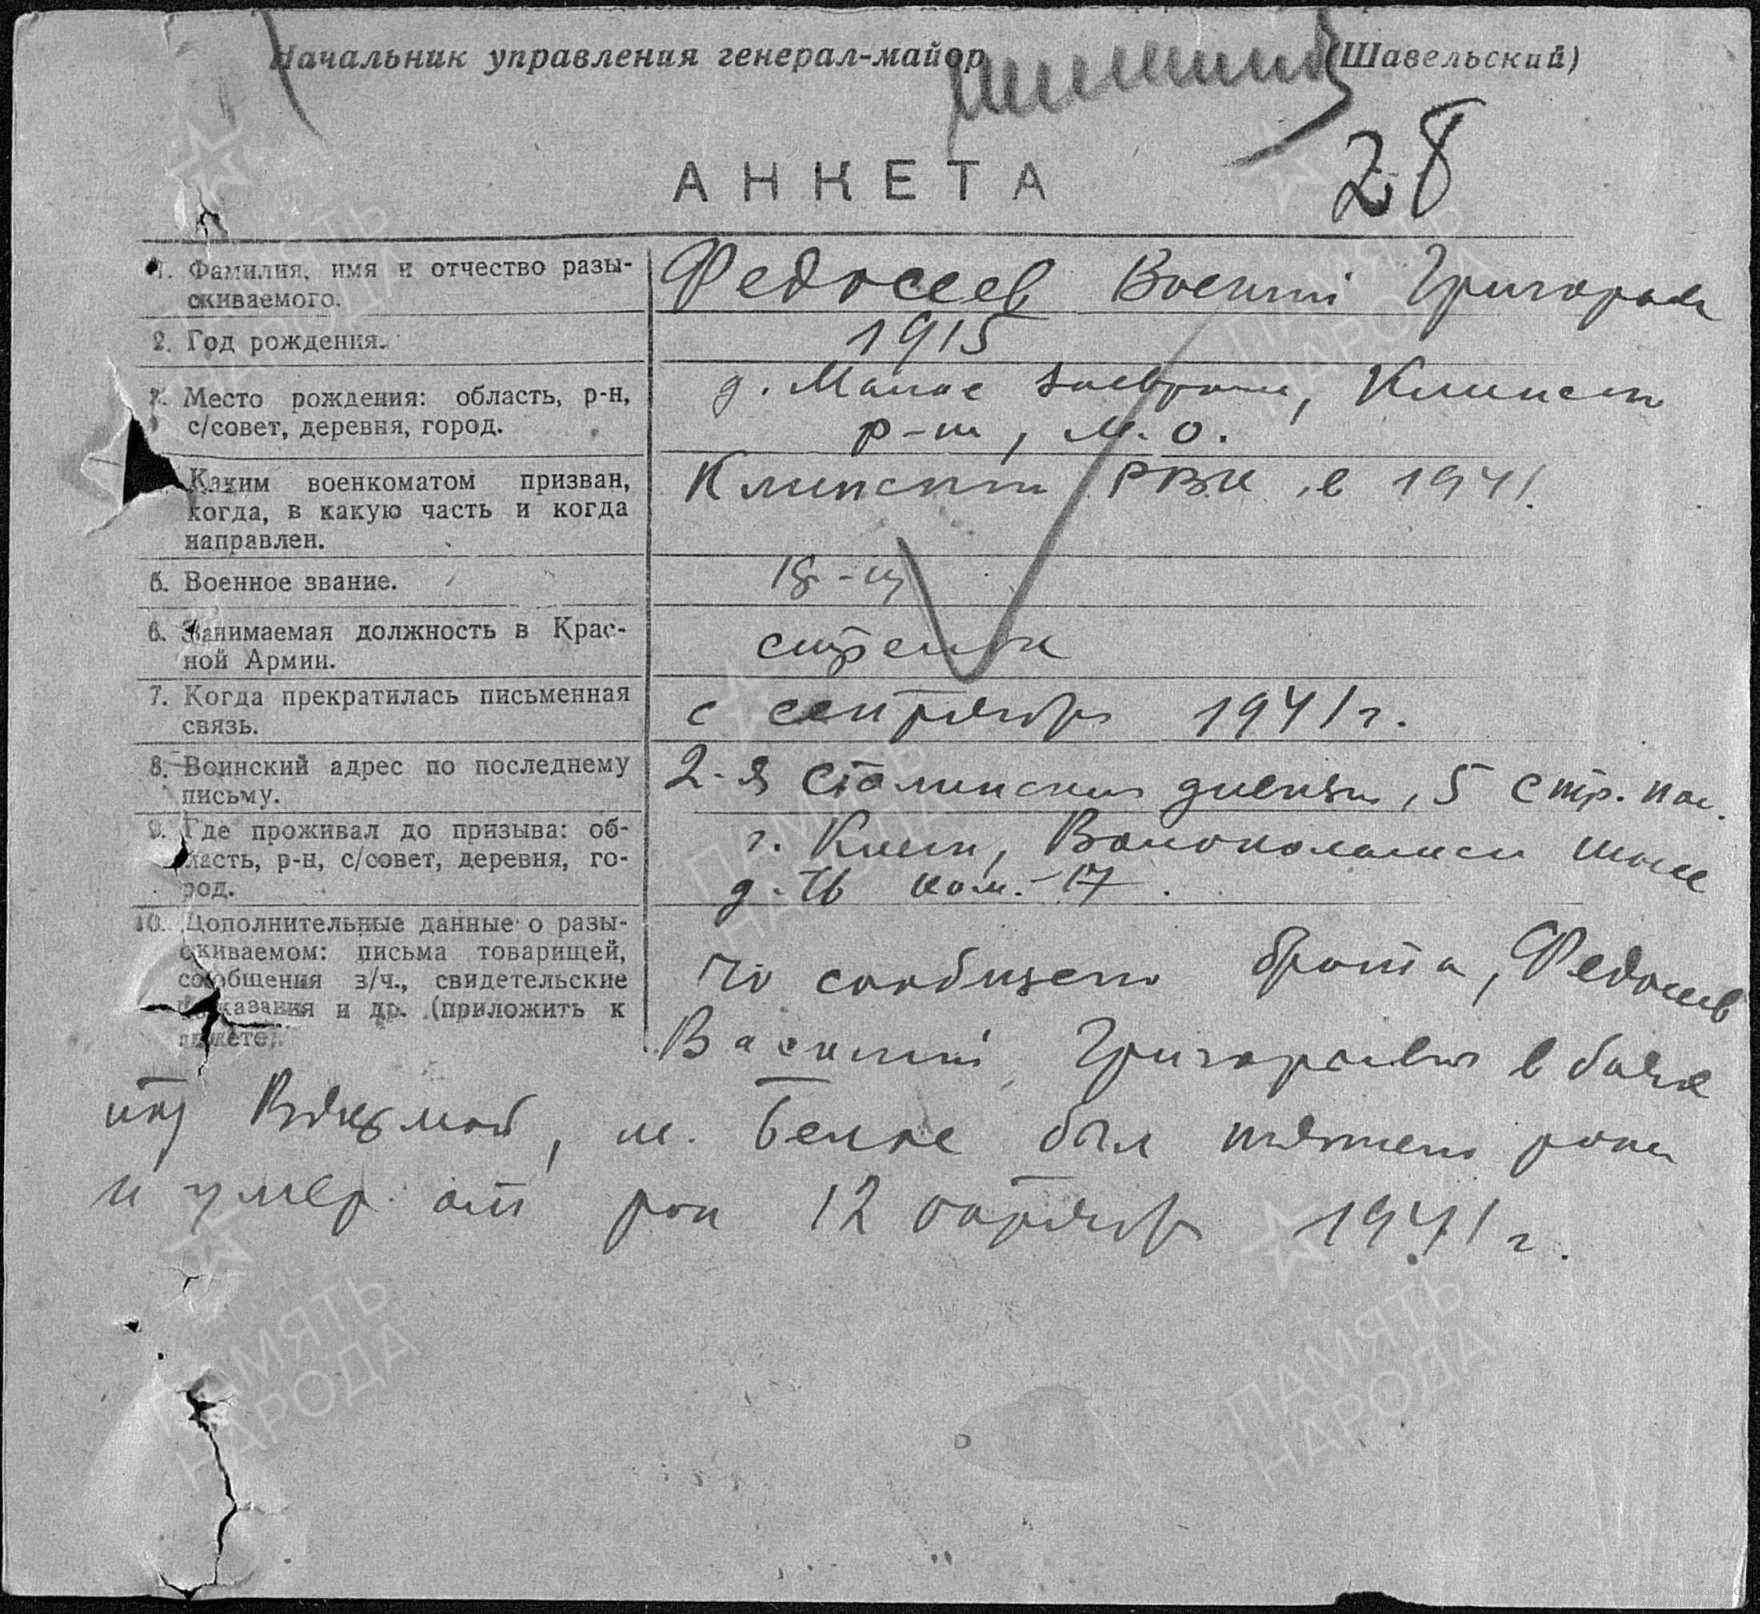 Начальник управления генерал-майор (Шавельский)
28
АНКЕТА
1. Фамилия, имя и отчество разыскиваемого. Федосеев Василий Григорьев
2. Год рождения. 1915
Место рождения: область, р-н, с/совет, деревня, город. д. Малое, Клинск
р-н, М.О.
Каким военкоматом призван, когда, в какую часть и когда направлен. Клинским РВК, в 1941.
5. Военное звание. кр-ц
6. Занимаемая должность в Красной Армии. стрелок
7. Когда прекратилась письменная связь. с сентября 1941 г.
8. Воинский адрес по последнему письму. 2-я Сталинская дивизия, 5 стр. пол.
9. Где проживал до призыва: область, р-н, с/совет, деревня, город. г. Клин, Волоколамское шоссе
д. ком. 17.
10. Дополнительные данные о разыскиваемом: письма товарищей, сообщения з/ч., свидетельские показания и др. (приложить к анкете).
По сообщению брата, Федосеев
Василий Григорьевич в боях
под Вязьмой, м. Белое был тяжело ранен
и умер от ран 12 октября 1941 г.
ПАМЯТЬ НАРОДА